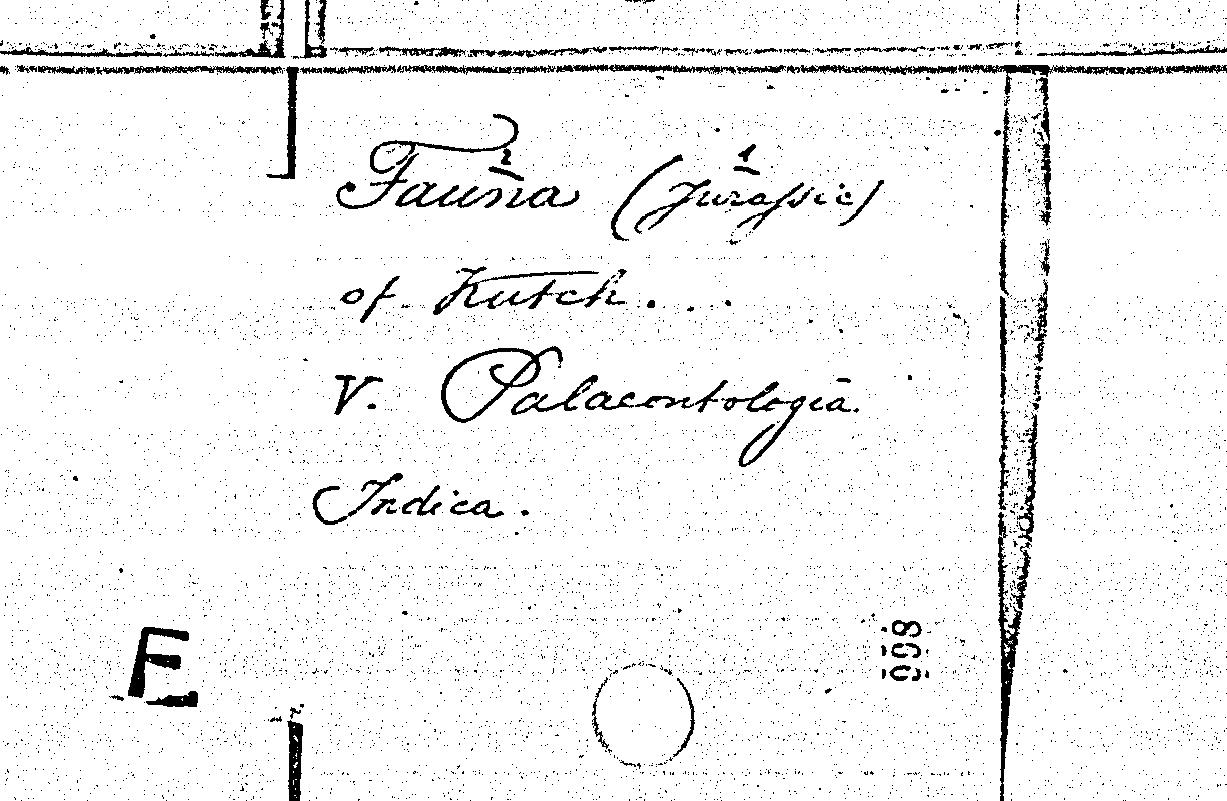 Fauna (Jurassic)
of Kutch.
V. Palaeontologia
Indica.
E
998